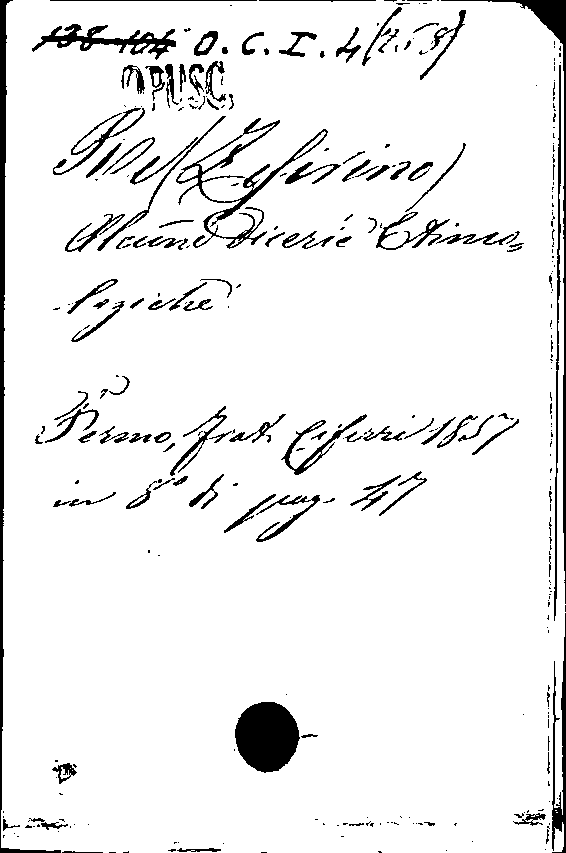 138-104 O. C. I. 4 (258)
OPUSC.
Re (Zefirino)
Alcune dicerie Etimo-
logiche
Fermo, frat. Ciferri 1857
in 8° di pag. 47